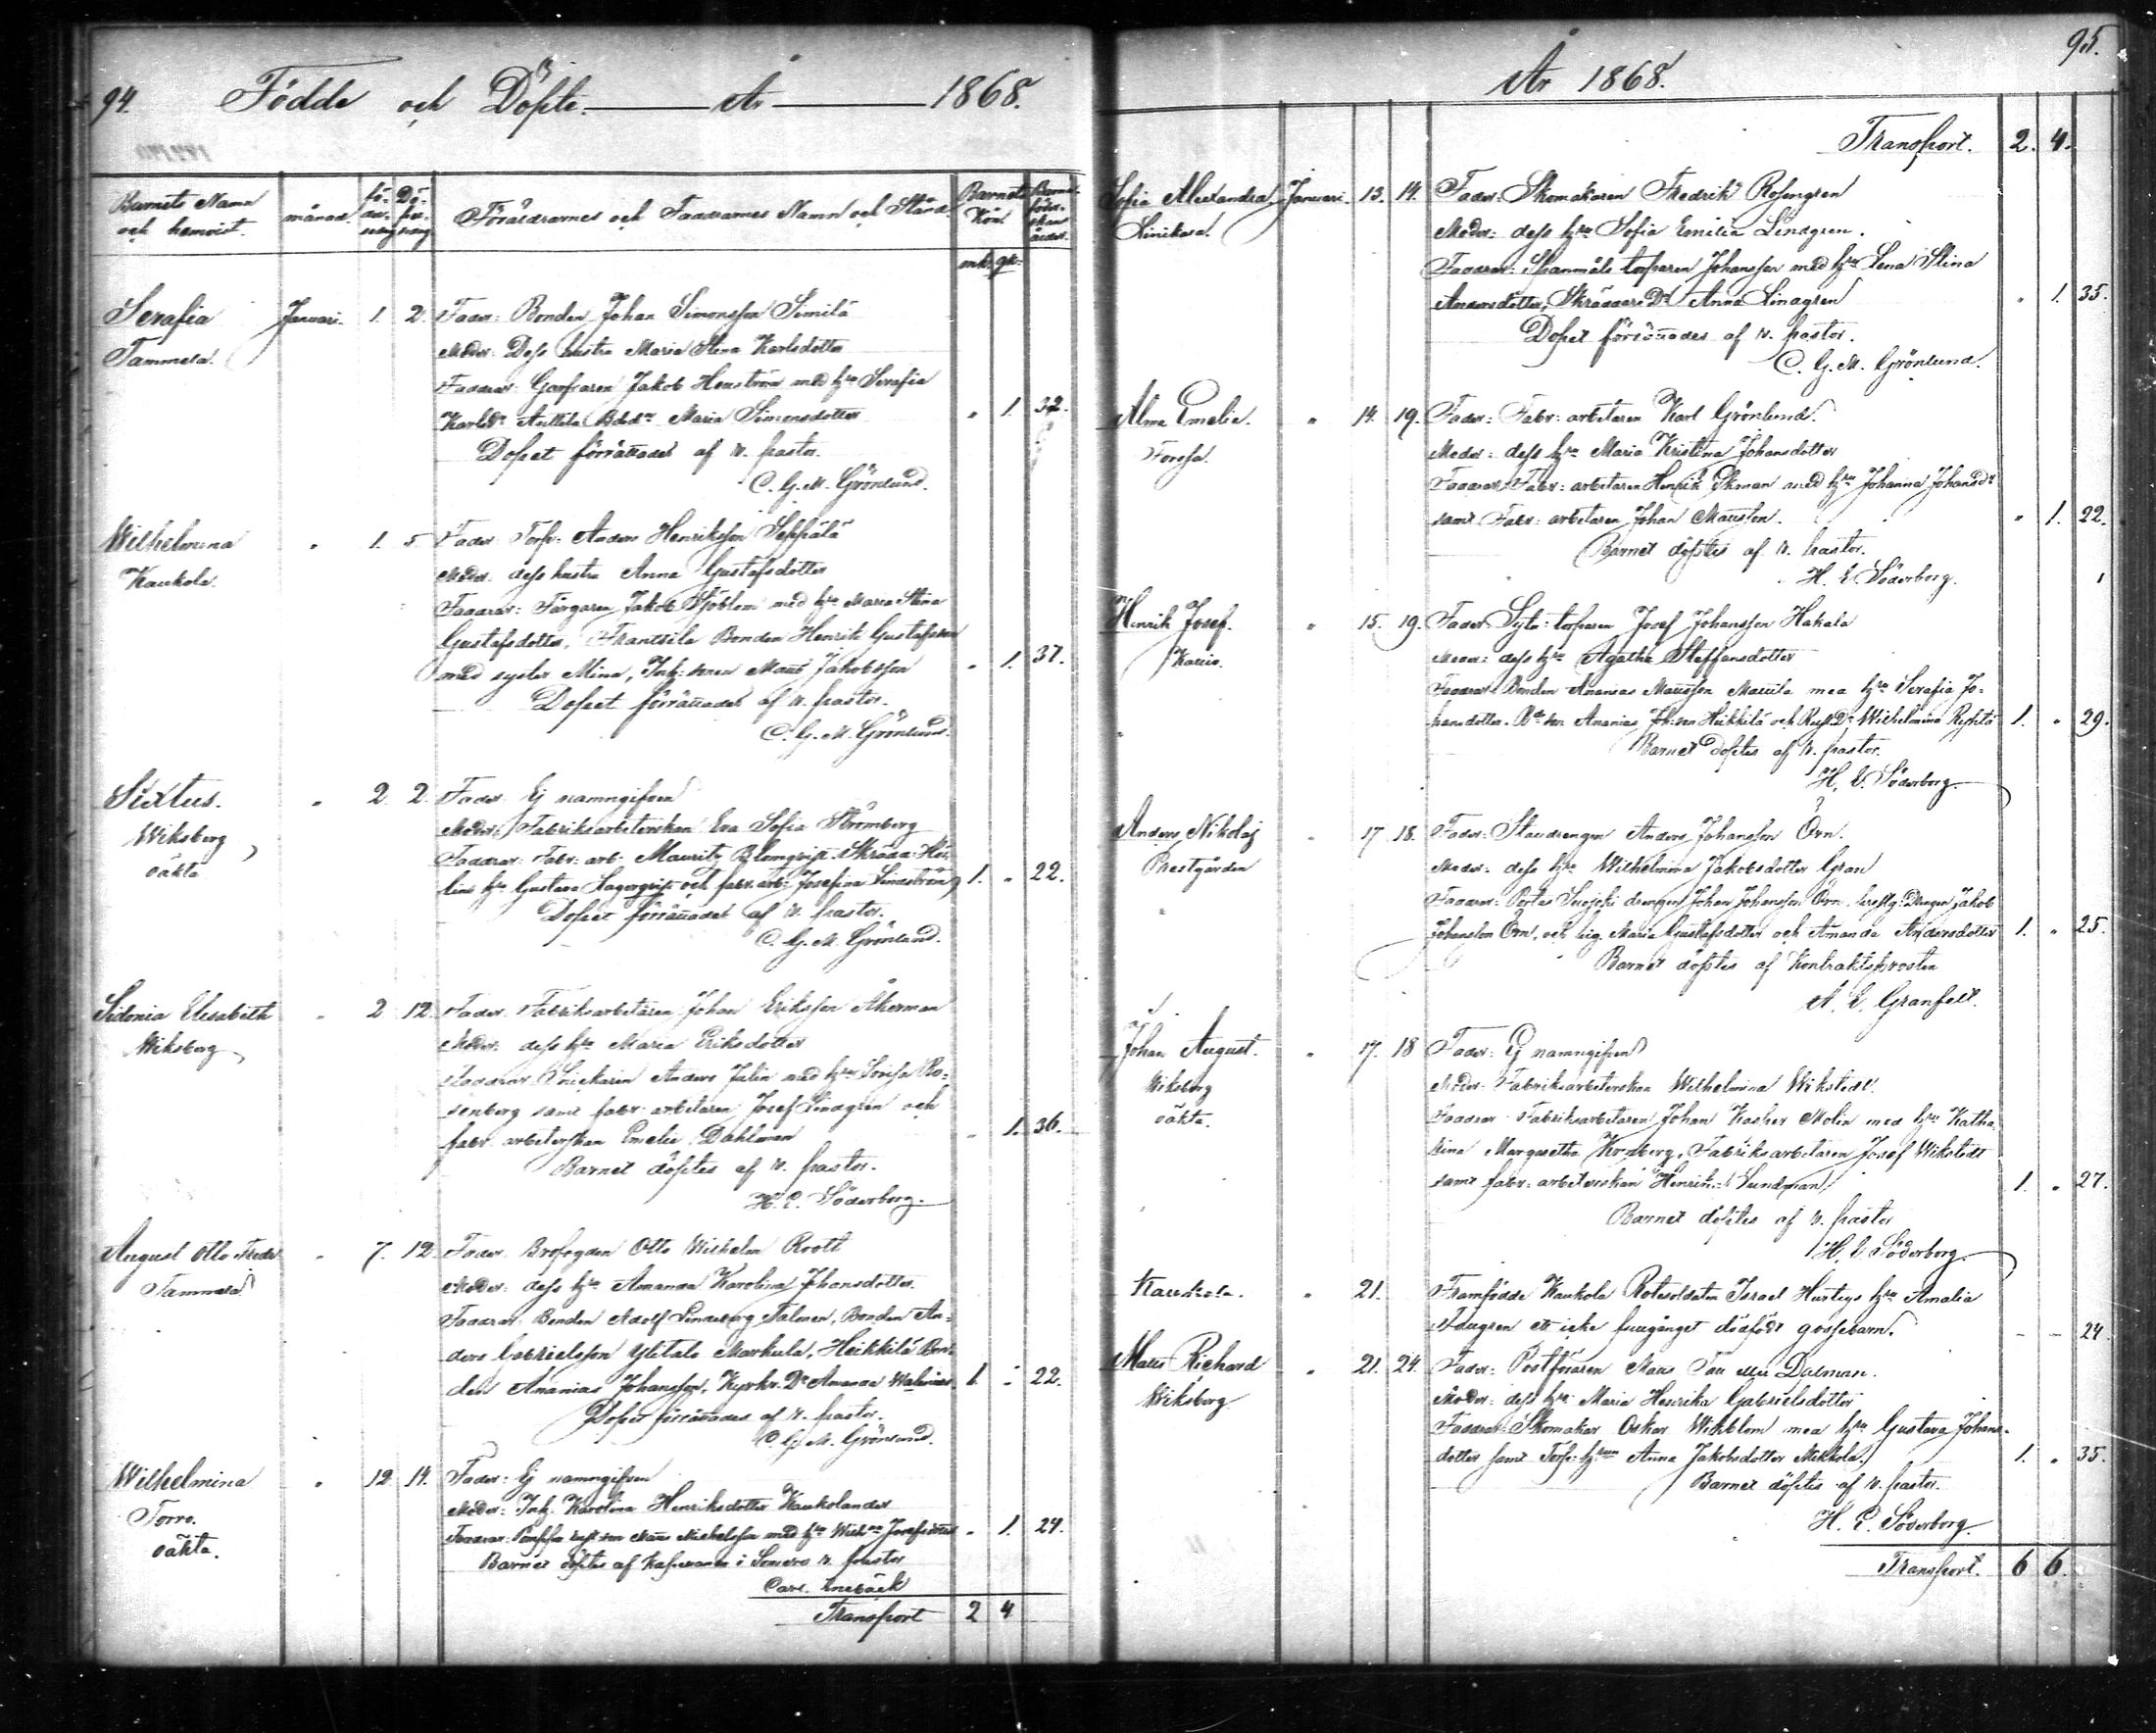 94. Födde och Döpte. År 1868.
Barnets Namn och hemvist. månad. fö-delse-dag Dö-pel-sedag Föräldrarnes och Faddrarnes Namn och Stånd. Barnets Kön Barna-föder-skans ålder.
mk. qk.
Serafia Januari. 1. 2. Fader: Bonden Johan Simonsson Simila
Tammela. Moder: Dess hustru Maria Stina Karlsdotter
Faddrar: Jakob Henström med h:u Serafia
Karlsd:r Anttila Maria Simonsdotter " 1. 32.
Dopet förrättades af v. pastor.
C. G. M. Grönlund.
Wilhelmina " 1. 5. Fader: Torp. Anders Henriksson Seppälä
Kaukola. Moder: dess hustru Anna Gustafsdotter
Faddrar: Färgaren Jakob Sjöblom med h:u Maria Stina
Gustafsdotter, Frantsila Bonden Henrik Gustafsson
med syster Mina, Inh: sonen Matts Jakobsson " 1. 37.
Dopet förrättades af v. pastor.
C. G. M. Grönlund.
Sixtus. " 2. 2. Fader: Ej namngifven
Wiksberg Moder: Fabriksarbeterskan Eva Sofia Strömberg
oäkta Faddrar: Fabr: arb: Mauritz Blomqvist. Skrädd:
h:u Gustava Lagerqvist och fabr. arb: Josefina Lindström 1. " 22.
Dopet förrättades af v. pastor.
C. G. M. Grönlund.
Sidonia Elisabeth " 2. 12. Fader: Fabriksarbetaren Johan Eriksson Åkerman
Wiksberg Moder: dess h:u Maria Eriksdotter
Faddrar: Snickaren Anders Jalin med h:u Lovisa Ro-
senberg samt fabr: arbetaren Josef Lindgren och
fabr. arbeterskan Emelie Dahlman " 1. 36.
Barnet döptes af v. pastor.
H. E. Söderborg.
August Otto Fredr " 7. 12. Fader: Brofogden Otto Wilhelm Roott
Tammela Moder: dess h:u Amanda Karolina Johansdotter.
Faddrar: Bonden Adolf Lindeberg Talmen, Bonden An-
ders Gabrielsson Ylitalo Markula, Heikkilä Bon-
den Ananias Johansson, Kyrkv. D:r Amanda 1. " 22.
Dopet förrättades af v. pastor.
C. G. M. Grönlund.
Wilhelmina " 12. 14. Fader: Ej namngifven
Torro. Moder: Inh. Karolina Henriksdotter Kaukolander
oäkta. Faddrar: Matts Michelsson med h:u Josefsdotter " 1. 24.
Barnet döptes af Kaplanen i Somero v. pastor
Carl
Transport 2 4
95.
År 1868.
Transport. 2. 4.
Sofia Alexandra Januari. 13. 14. Fader: Skomakaren Fredrik Rosengren
Linikkala. Moder: dess h:u Sofia Emilia Lindgren.
Faddrar: Spanmåls torparen Johansson med h:u Lena Stina
Andersdotter, Skräddare D:r Anna Lindgren " 1. 35.
Dopet förrättades af v. pastor.
C. G. M. Grönlund.
Alma Emelie. " 14. 19. Fader: Fabr: arbetaren Karl Grönlund.
Forssa. Moder: dess h:u Maria Kristina Johansdotter
Faddrar: Fabr: arbetaren Henrik Ekman med h:u Johanna Johansd:r
samt Fabr: arbetaren Johan Mattsson. " 1. 22.
Barnet döptes af v. pastor.
H. E. Söderborg.
Henrik Josef. " 15. 19. Fader: Sytn: torparen Josef Johansson Hakala
Moder: dess h:u Agatha Steffansdotter
Faddrar: Bonden Ananias Mattsson Mattila med h:u Serafia Jo-
hansdotter. Ananias Heikkilä och Wilhelmina 1. " 29.
Barnet döptes af v. pastor.
H. E. Söderborg.
Anders Nikolaj " 17. 18. Fader: Stalldrengen Anders Johansson Örn.
Prestgården Moder: dess h:u Wilhelmina Jakobsdotter Gran
Faddrar: Portas Suojoki drengen Johan Johansson Örn, Drengen Jakob
Johansson Örn, och Maria Gustafsdotter och Amanda Andersdotter 1. " 25.
Barnet döptes af Kontraktsprosten
A. E. Granfelt.
Johan August. " 17. 18 Fader: Ej namngifven
Wiksberg Moder: Fabriksarbeterskan Wilhelmina Wikstedt.
oäkta. Faddrar: Fabriksarbetaren Johan Kasper Molin med h:u Katha
rina Margaretha Kronberg, Fabriksarbetaren Josef Wikstedt
samt fabr: arbeterskan Henrika Sundman 1. " 27.
Barnet döptes af v. pastor
H. E. Söderborg.
Kaukola. " 21. Framfödde Kaukola Rotesoldaten Israel Hurtigs h:u Amalia
ett icke fullgånget dödfödt gossebarn. - - 24
Matts Richard " 21. 24. Fader: Postföraren Matts Dalman.
Wiksberg Moder: dess h:u Maria Henrika Gabrielsdotter
Faddrar: Skomakar Oskar Wikblom med h:u Gustava Johans-
dotter samt Torp: h:un Anna Jakobsdotter Mikkola. 1. " 35.
Barnet döptes af v. pastor.
H. E. Söderborg
Transport. 6 6.